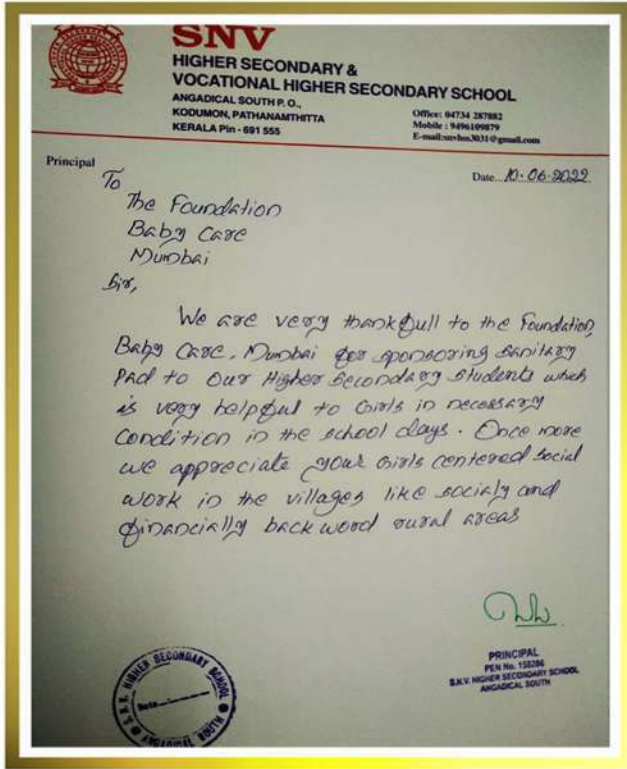 SNV
HIGHER SECONDARY &
VOCATIONAL HIGHER SECONDARY SCHOOL
ANGADICAL SOUTH P. O.,
KODUMON, PATHANAMTHITTA
KERALA Pin - 691 555
Office: 04734 287882
Mobile : 9496109879
E-mail:snvhss3031@gmail.com
Principal
Date 10-06-2022
To
The Foundation
Baby Care
Mumbai
Sir,
We are very thankfull to the Foundation,
Baby Care, Mumbai for sponsoring Sanitary
Pad to our Higher Secondary students which
is very helpful to Girls in necessary
Condition in the school days. Once more
we appreciate your Girls centered social
work in the villages like socialy and
financially back word rural areas
PRINCIPAL
PEN No. 158286
S.N.V. HIGHER SECONDARY SCHOOL
ANGADICAL SOUTH
HIGHER SECONDARY SCHOOL
Date